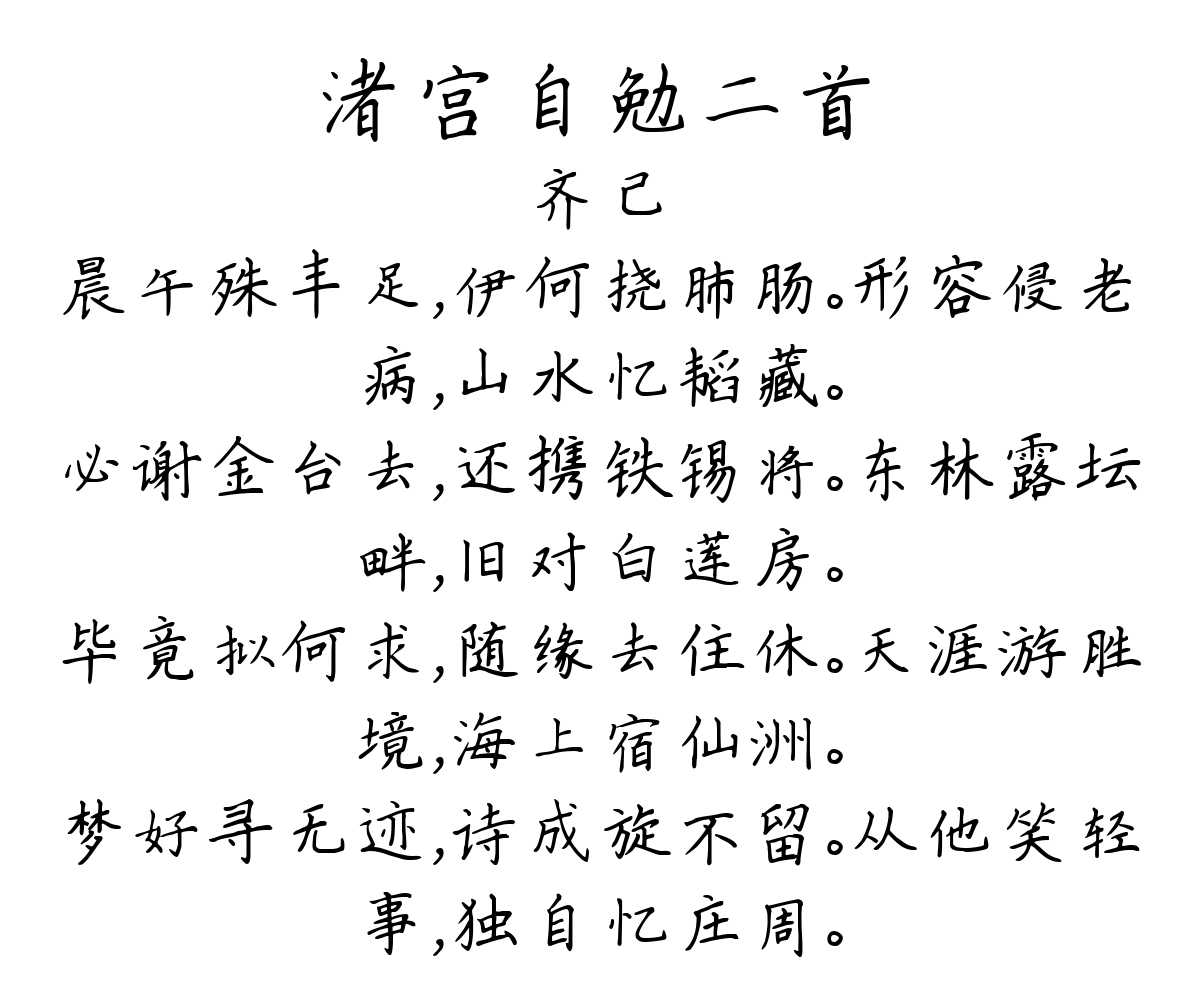 渚宫自勉二首
齐己
晨午殊丰足,伊何挠肺肠。形容侵老
病,山水忆韬藏。
必谢金台去,还携铁锡将。东林露坛
畔,旧对白莲房。
毕竟拟何求,随缘去住休。天涯游胜
境,海上宿仙洲。
梦好寻无迹,诗成旋不留。从他笑轻
事,独自忆庄周。